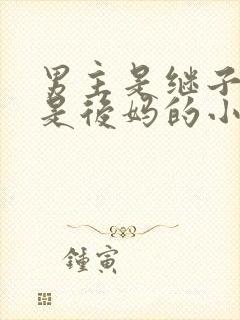 男主是继子
是後妈的小
鍾寅